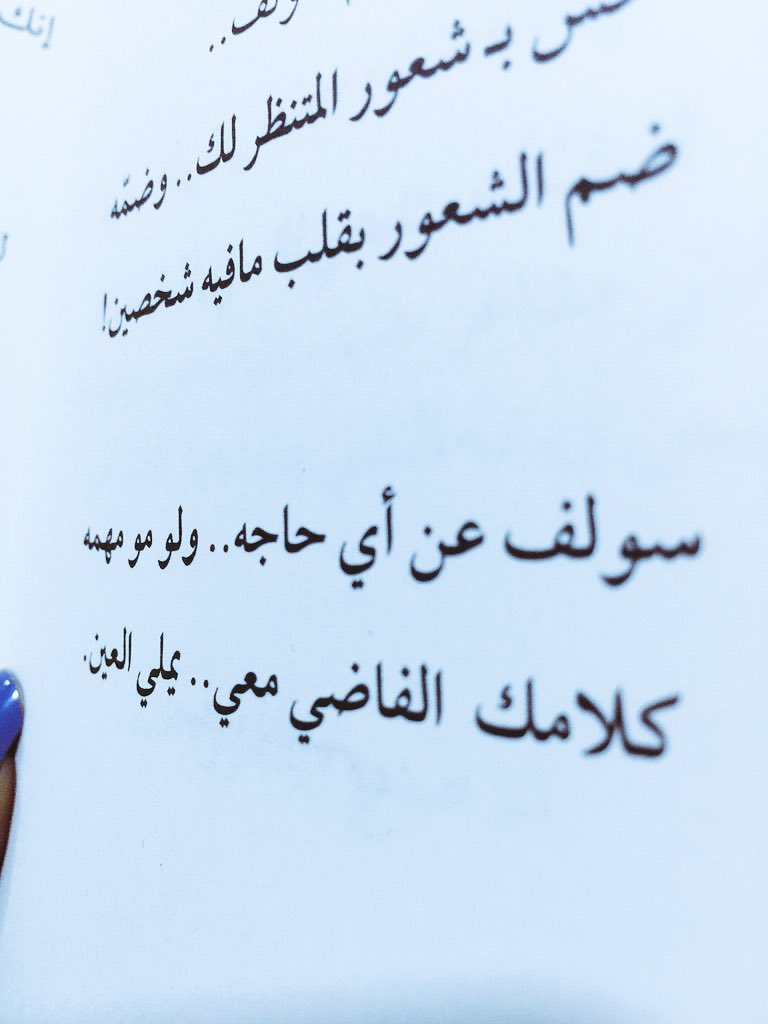 بـ شعور المتنظر لك.. وضمّه
ضم الشعور بقلب مافيه شخصين!
سولف عن أي حاجه.. ولو مو مهمه
كلامك الفاضي معي.. يملي العين.
إنك